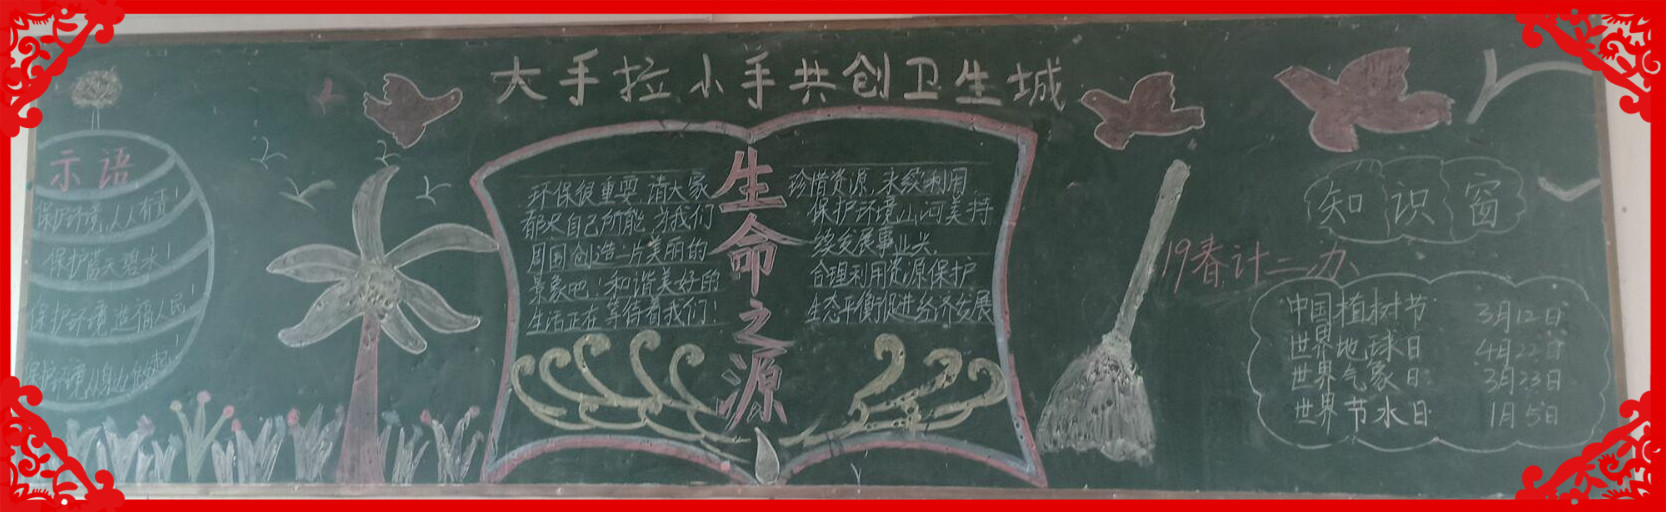 大手拉小手共创卫生城
示语
保护环境,人人有责!
保护蓝天碧水!
保护环境 造福人民!
保护环境从身边做起!
环保很重要,请大家
都尽自己所能,为我们
周围创造一片美丽的
景象吧!和谐美好的
生活正在等待着我们!
生命之源
珍惜资源,永续利用
保护环境山河美持
续发展事业兴.
合理利用资源保护
生态平衡促进经济发展
19春计二办
知识窗
中国植树节 3月12日
世界地球日 4月22日
世界气象日 3月23日
世界节水日 1月5日